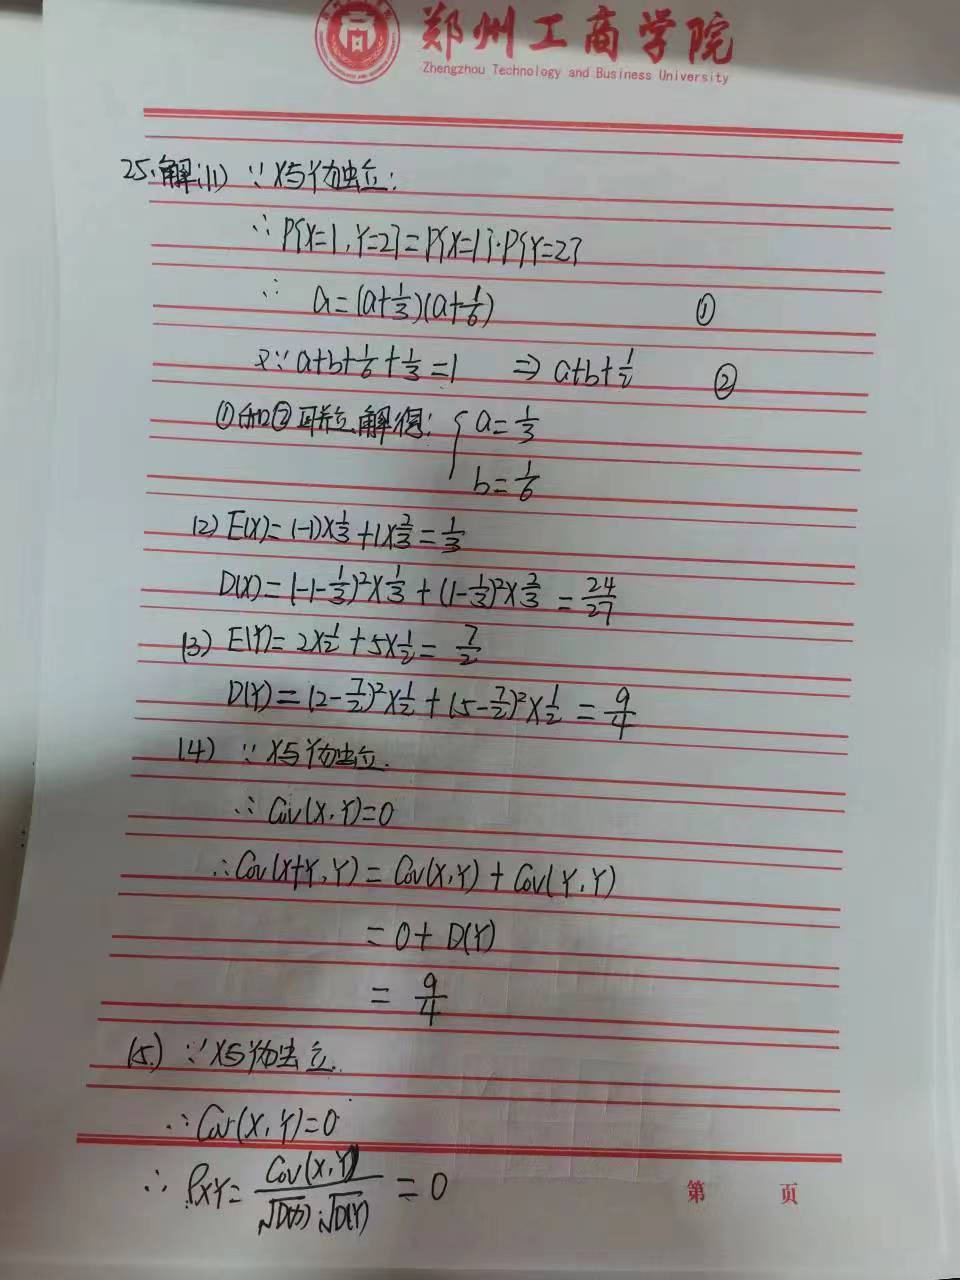 郑州工商学院
Zhengzhou Technology and Business University
25.解:(1) ∵X与Y独立:
∴P{X=1,Y=2}=P{X=1}·P{Y=2}
∴ a=(a+1/3)(a+1/6) ①
又∵a+b+1/6+1/3=1 ⇒ a+b+1/2 ②
①和②联立解得:{a=1/3
b=1/6
(2) E(X)=(-1)×1/3+1×2/3=1/3
D(X)=(-1-1/3)²×1/3+(1-1/3)²×2/3=24/27
(3) E(Y)=2×1/2+5×1/2=7/2
D(Y)=(2-7/2)²×1/2+(5-7/2)²×1/2=9/4
(4) ∵X与Y独立.
∴Cov(X,Y)=0
∴Cov(X+Y,Y)=Cov(X,Y)+Cov(Y,Y)
=0+D(Y)
=9/4
(5) ∵X与Y独立.
∴Cov(X,Y)=0
∴ρXY=Cov(X,Y)/√D(X)·√D(Y)=0
第 页